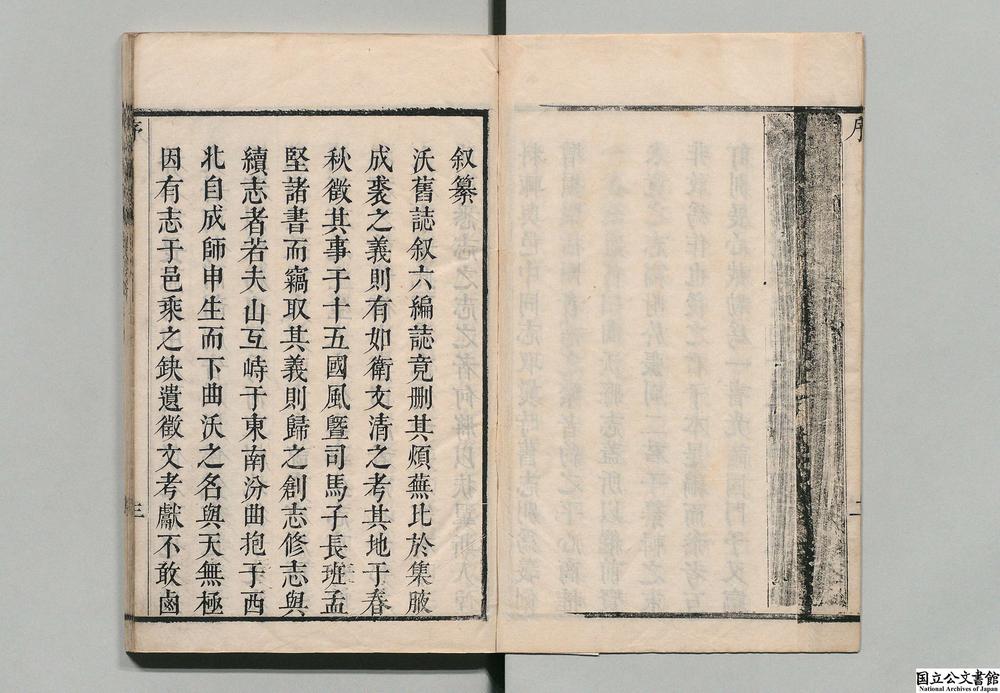 序
二
叙纂
沃舊誌叙六編誌竟刪其煩蕪比於集腋
成裘之義則有如衛文清之考其地于春
秋徵其事于十五國風曁司馬子長班孟
堅諸書而竊取其義則歸之創志修志與
續志者若夫山互峙于東南汾曲抱于西
北自成師申生而下曲沃之名與天無極
因有志于邑乘之缺遺徵文考獻不敢鹵
序
三
国立公文書館
National Archives of Japan